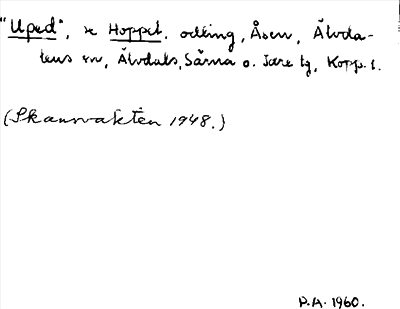 "Uped", se Hoppet. odling, Åsen, Älvda-
lens sn, Älvdals, Särna o. Idre tg, Kopp. l.
(Skansvakten 1948.)
P.A. 1960.